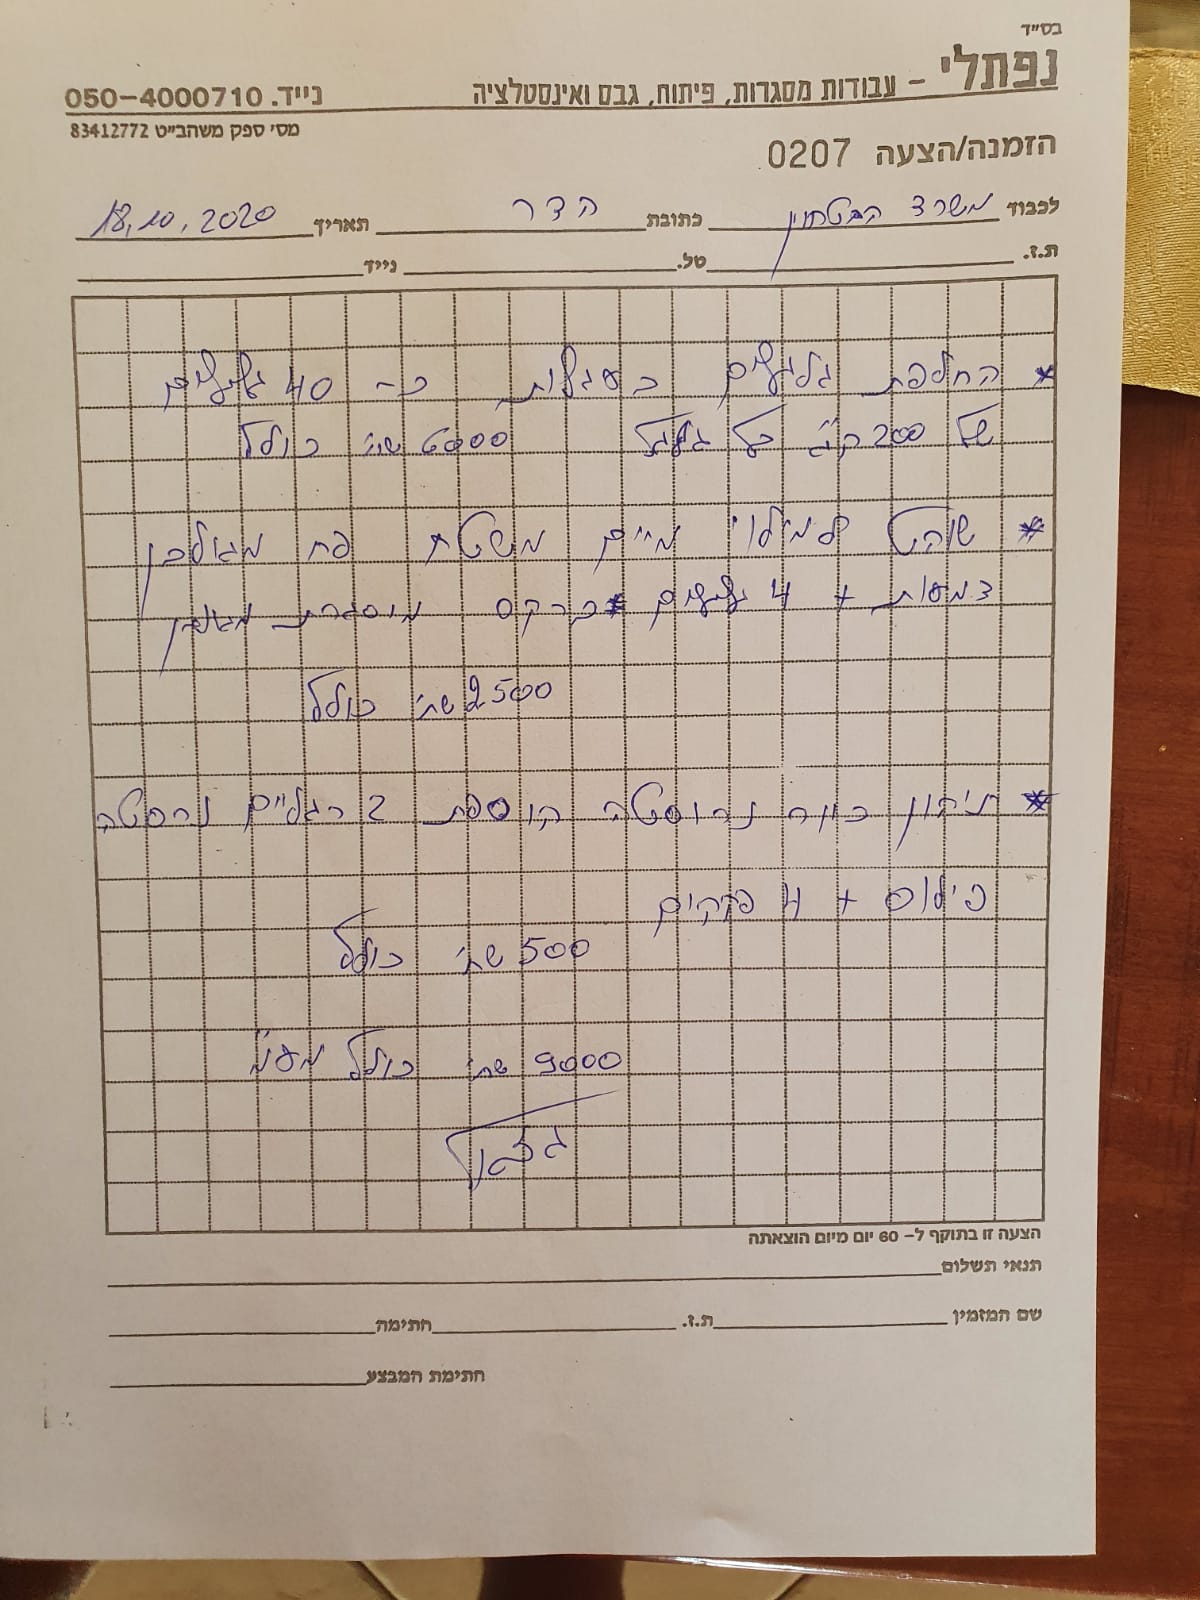 בס״ד
נפתלי - עבודות מסגרות, פיתוח, גבס ואינסטלציה נייד. 050-4000710
מס׳ ספק משהב״ט 83412772
הזמנה/הצעה 0207
לכבוד משרד הבטחון כתובת הדר תאריך 18.10.2020
ת.ז. טל. נייד
* החלפת גלגלים בעגלות כ- 40 גלגלים
של 200 ק״ג כל גלגל 6000 שח׳ כולל
* שוקט למילוי מיים משטח פח מגולבן
דמעות + 4 גלגלים ברקס מוסגרת מגולבן
2500 שח׳ כולל
* תיקון כיור נרוסטה הוספת 2 רגליים נרסטה
פילוס + 4 פקקים
500 שח׳ כולל
9000 שח׳ כולל מעמ״
הצעה זו בתוקף ל- 60 יום מיום הוצאתה
תנאי תשלום
שם המזמין ת.ז. חתימה
חתימת המבצע